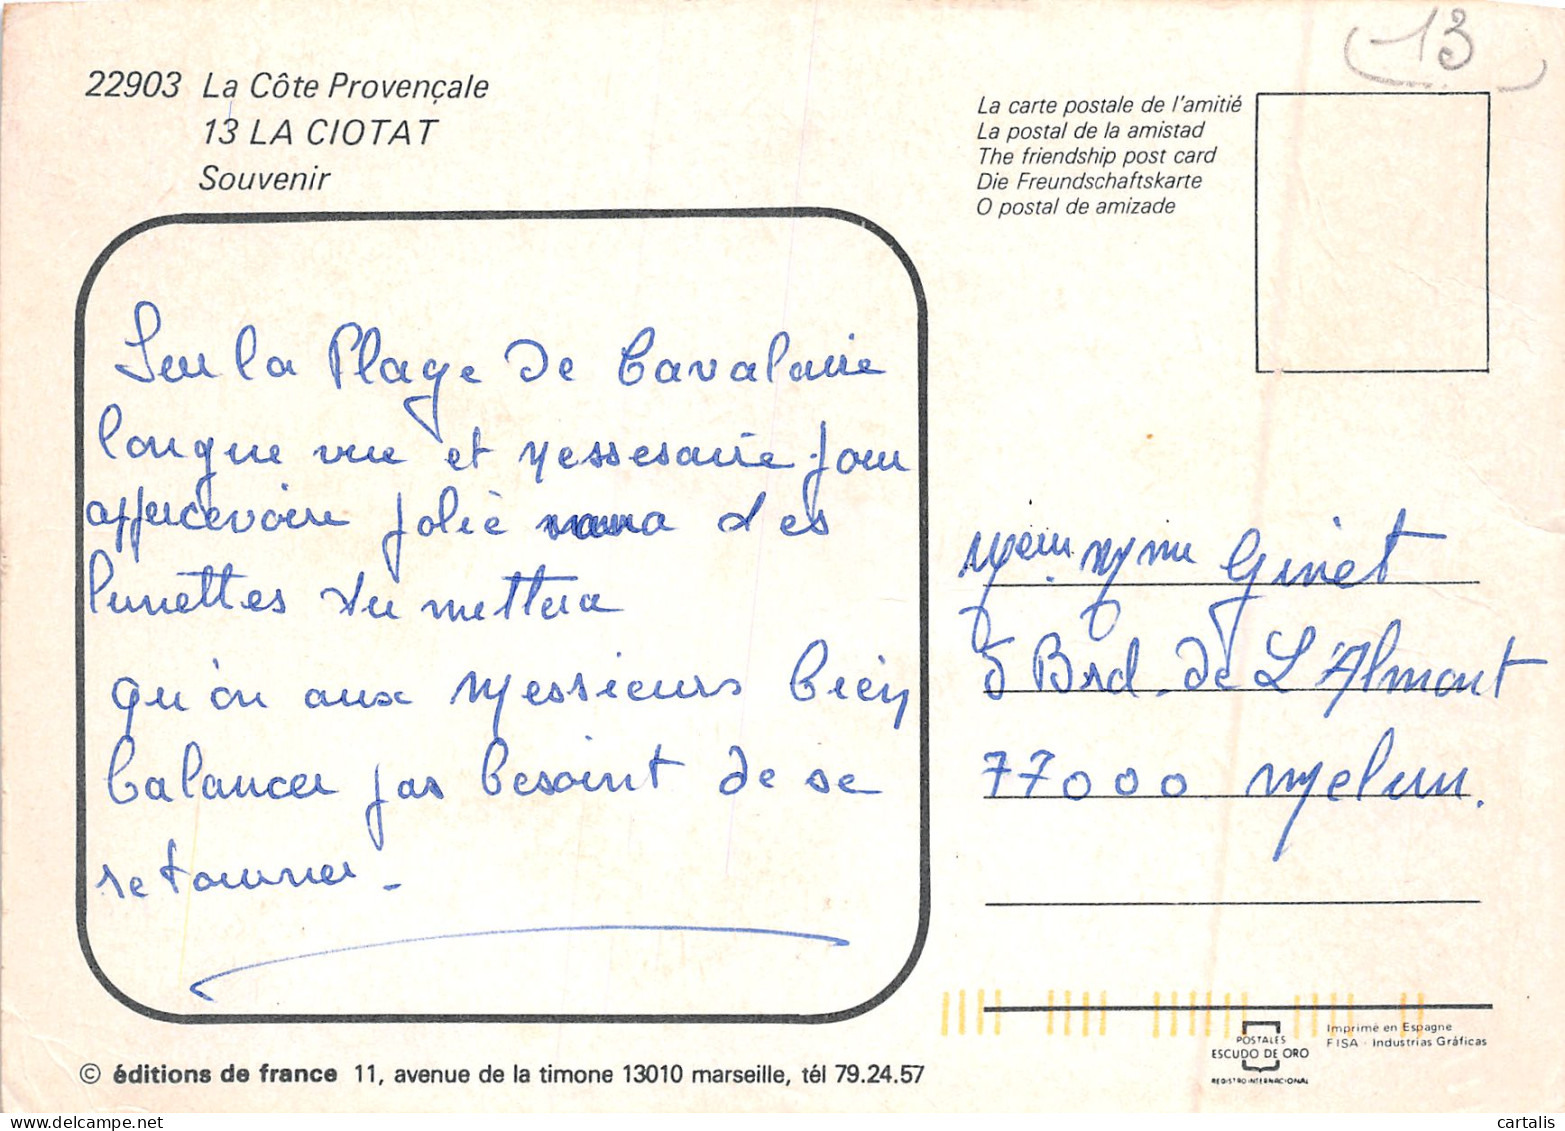 13
22903 La Côte Provençale
13 LA CIOTAT
Souvenir
La carte postale de l'amitié
La postal de la amistad
The friendship post card
Die Freundschaftskarte
O postal de amizade
Sur la Plage de Cavalaire
longue vue et nessesaire pour
appercevoire jolie nana des
lunettes du mettra
qu'on aux Messieurs bien
balancer pas besoint de se
retourner.
Mr. Mme Ginet
5 Brd. de L'Almont
77000 Melun.
© éditions de france 11, avenue de la timone 13010 marseille, tél 79.24.57
POSTALES
ESCUDO DE ORO
REGISTRO INTERNACIONAL
Imprimé en Espagne
FISA - Industrias Gráficas
cartalis